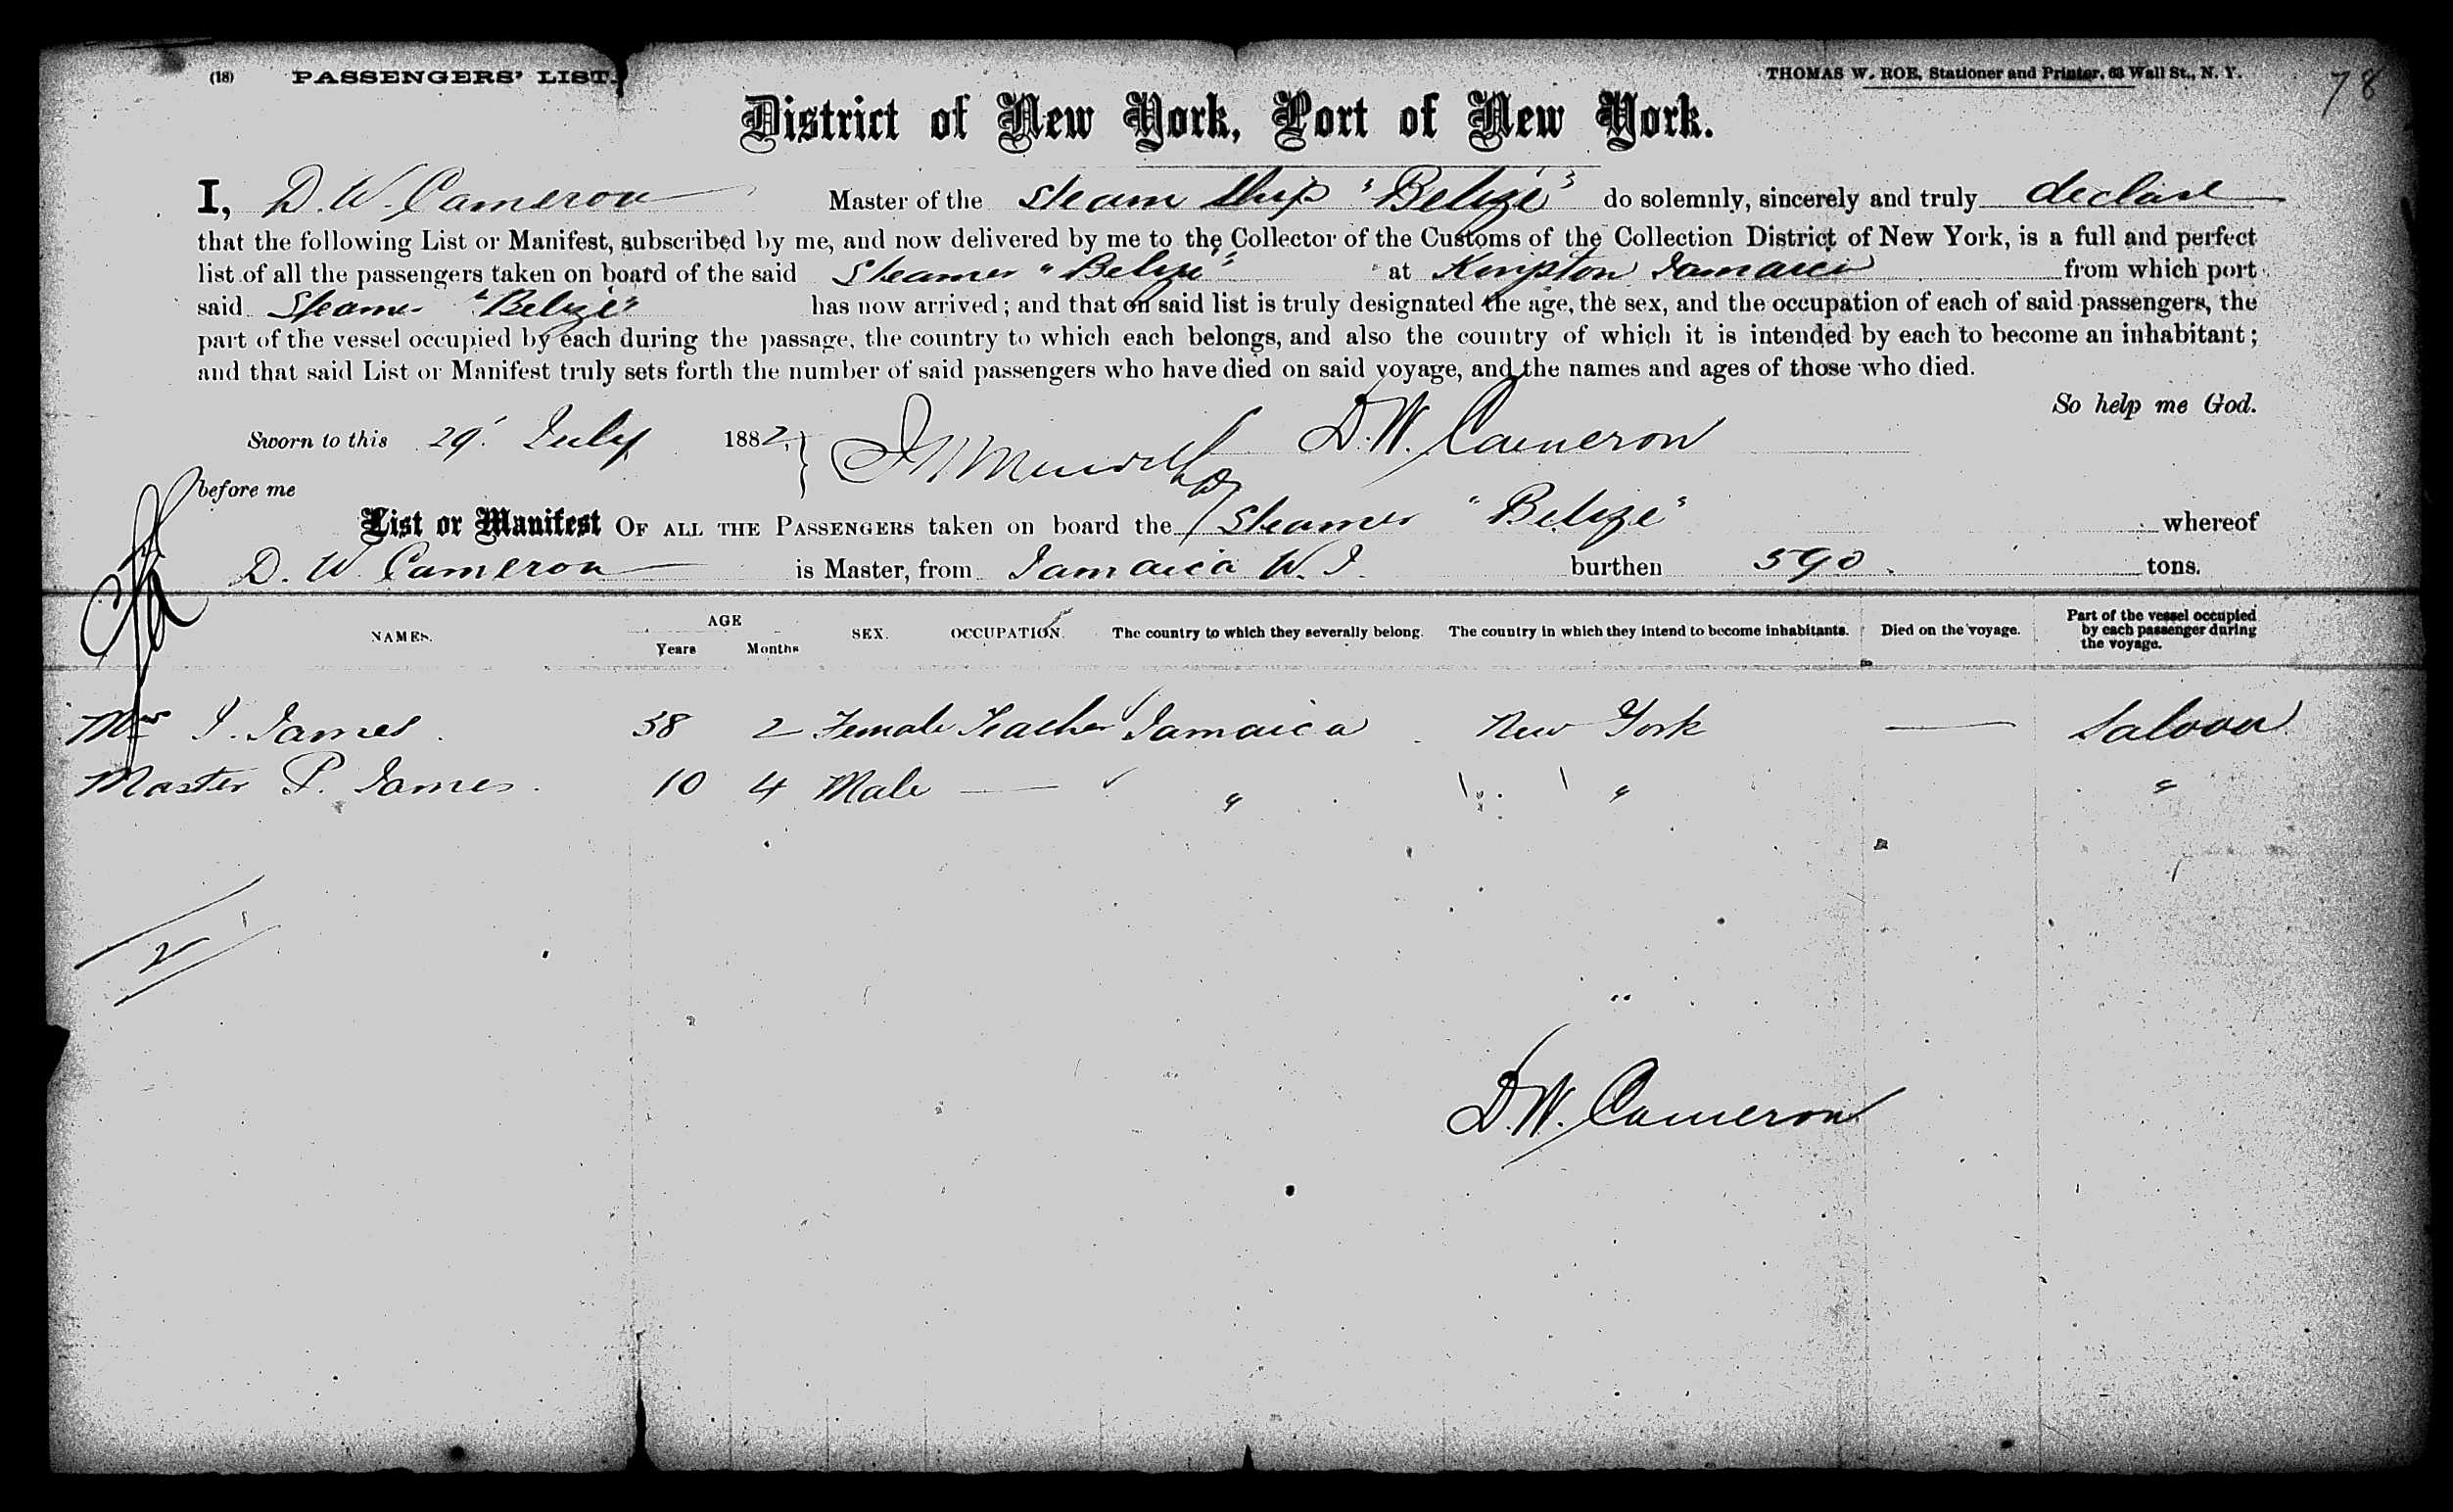 (18) PASSENGERS' LIST. THOMAS W. ROE, Stationer and Printer, 63 Wall St., N. Y. 78
District of New York, Port of New York.
I, D. W. Cameron Master of the Steam Ship "Belize" do solemnly, sincerely and truly declare
that the following List or Manifest, subscribed by me, and now delivered by me to the Collector of the Customs of the Collection District of New York, is a full and perfect
list of all the passengers taken on board of the said Steamer "Belize" at Kingston Jamaica from which port
said Steamer "Belize" has now arrived; and that on said list is truly designated the age, the sex, and the occupation of each of said passengers, the
part of the vessel occupied by each during the passage, the country to which each belongs, and also the country of which it is intended by each to become an inhabitant;
and that said List or Manifest truly sets forth the number of said passengers who have died on said voyage, and the names and ages of those who died.
So help me God.
Sworn to this 29' July 1882, D. W. Cameron
before me
List or Manifest OF ALL THE PASSENGERS taken on board the Steamer "Belize" whereof
D. W. Cameron is Master, from Jamaica W. I. burthen 590. tons.
NAMES. AGE Years Months SEX. OCCUPATION. The country to which they severally belong. The country in which they intend to become inhabitants. Died on the voyage. Part of the vessel occupied by each passenger during the voyage.
J. James. 38 2 Female Teacher Jamaica New York — Saloon
Master P. James. 10 4 Male — " " "
2
D. W. Cameron